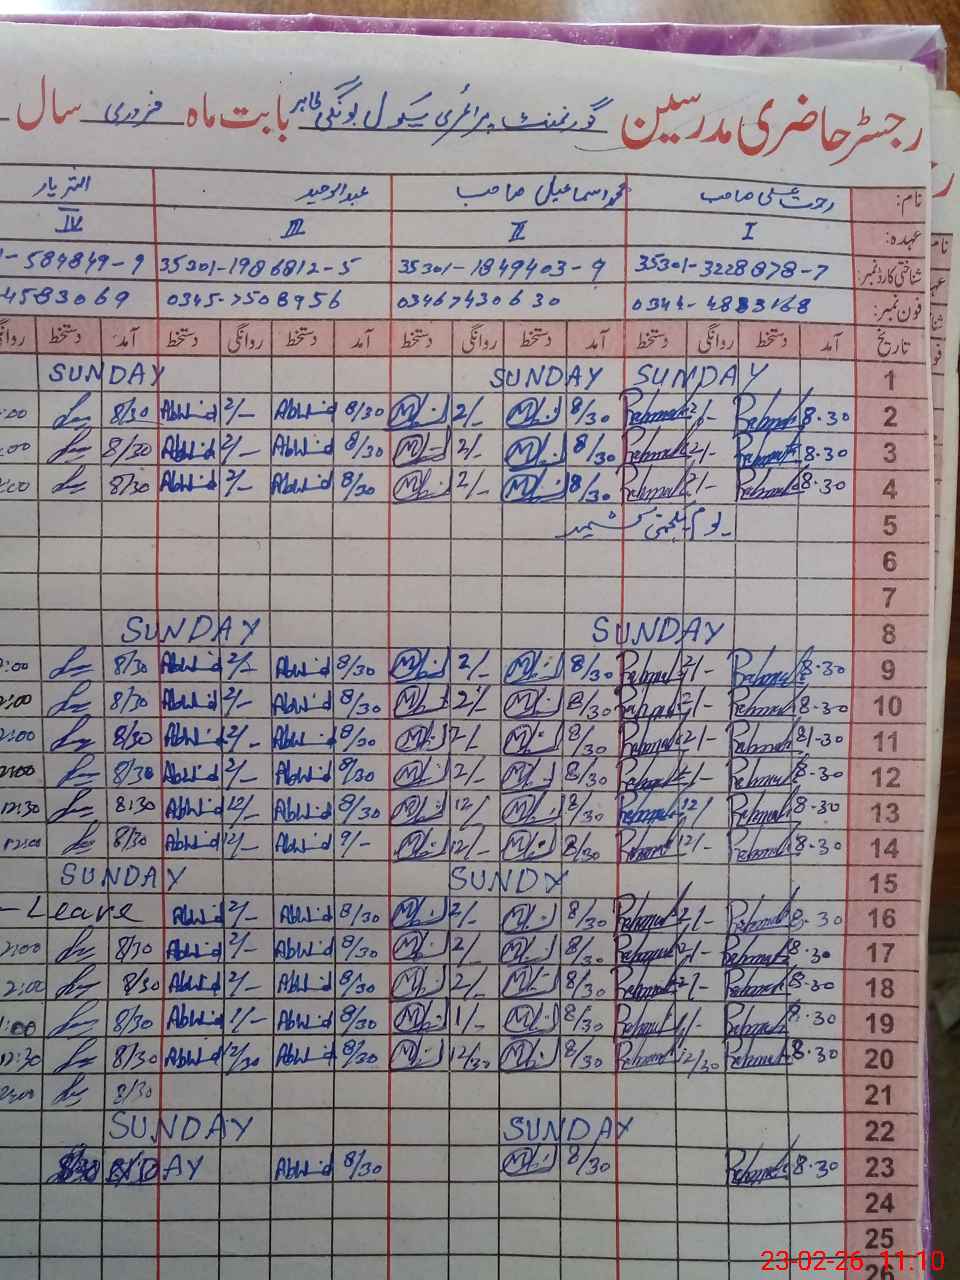 رجسٹر حاضری مدرسین گورنمنٹ پرائمری سکول بونگی طاہر بابت ماہ فروری سال
نام: رحمت علی صاحب محمد اسماعیل صاحب عبدالوحید
عہدہ: I II III IV
شناختی کارڈ نمبر: 35301-3228878-7 35301-1849403-9 35301-1986812-5 -584849-9
فون نمبر: 0344-4883168 03467430630 0345-7508956 4583069
تاریخ آمد دستخط روانگی دستخط آمد دستخط روانگی دستخط آمد دستخط روانگی دستخط آمد دستخط
1 SUNDAY SUNDAY SUNDAY
2 8.30 Rehmat 2/- 8/30 2/- 8/30 Abwid 2/- Abwid 8/30 :00
3 8.30 Rehmat 2/- 8/30 2/- 8/30 Abwid 2/- Abwid 8/30 :00
4 8.30 Rehmat 2/- 8/30 2/- 8/30 Abwid 2/- Abwid 8/30 :00
5 یوم یکجہتی کشمیر
6
7
8 SUNDAY SUNDAY
9 8.30 Rehmat 2/- 8/30 2/- 8/30 Abwid 2/- Abwid 8/30 :00
10 8.30 Rehmat 2/- 8/30 2/- 8/30 Abwid 2/- Abwid 8/30 2:00
11 8/-30 Rehmat 2/- 8/30 2/- 8/30 Abwid 2/- Abwid 8/30 2:00
12 8.30 Rehmat 2/- 8/30 2/- 8/30 Abwid 2/- Abwid 8/30 2:00
13 8.30 Rehmat 12/- 8/30 12/- 8/30 Abwid 12/- Abwid 8:30 12:30
14 8.30 Rehmat 12/- 8/30 12/- 9/- Abwid 12/- Abwid 8/30 12:00
15 SUNDY SUNDAY
16 8.30 Rehmat 2/- 8/30 2/- 8/30 Abwid 2/- Abwid -Leave
17 8.30 Rehmat 2/- 8/30 2/- 8/30 Abwid 2/- Abwid 8/30 2:00
18 8.30 Rehmat 2/- 8/30 2/- 8/30 Abwid 2/- Abwid 8/30 2:00
19 8.30 Rehmat 1/- 8/30 1/- 8/30 Abwid 1/- Abwid 8/30 1:00
20 8.30 Rehmat 12/30 8/30 12/30 8/30 Abwid 12/30 Abwid 8/30 12:30
21 8/30 2:00
22 SUNDAY SUNDAY
23 8.30 Rehmat 8/30 8/30 Abwid
24
25
26
23-02-26 11:10